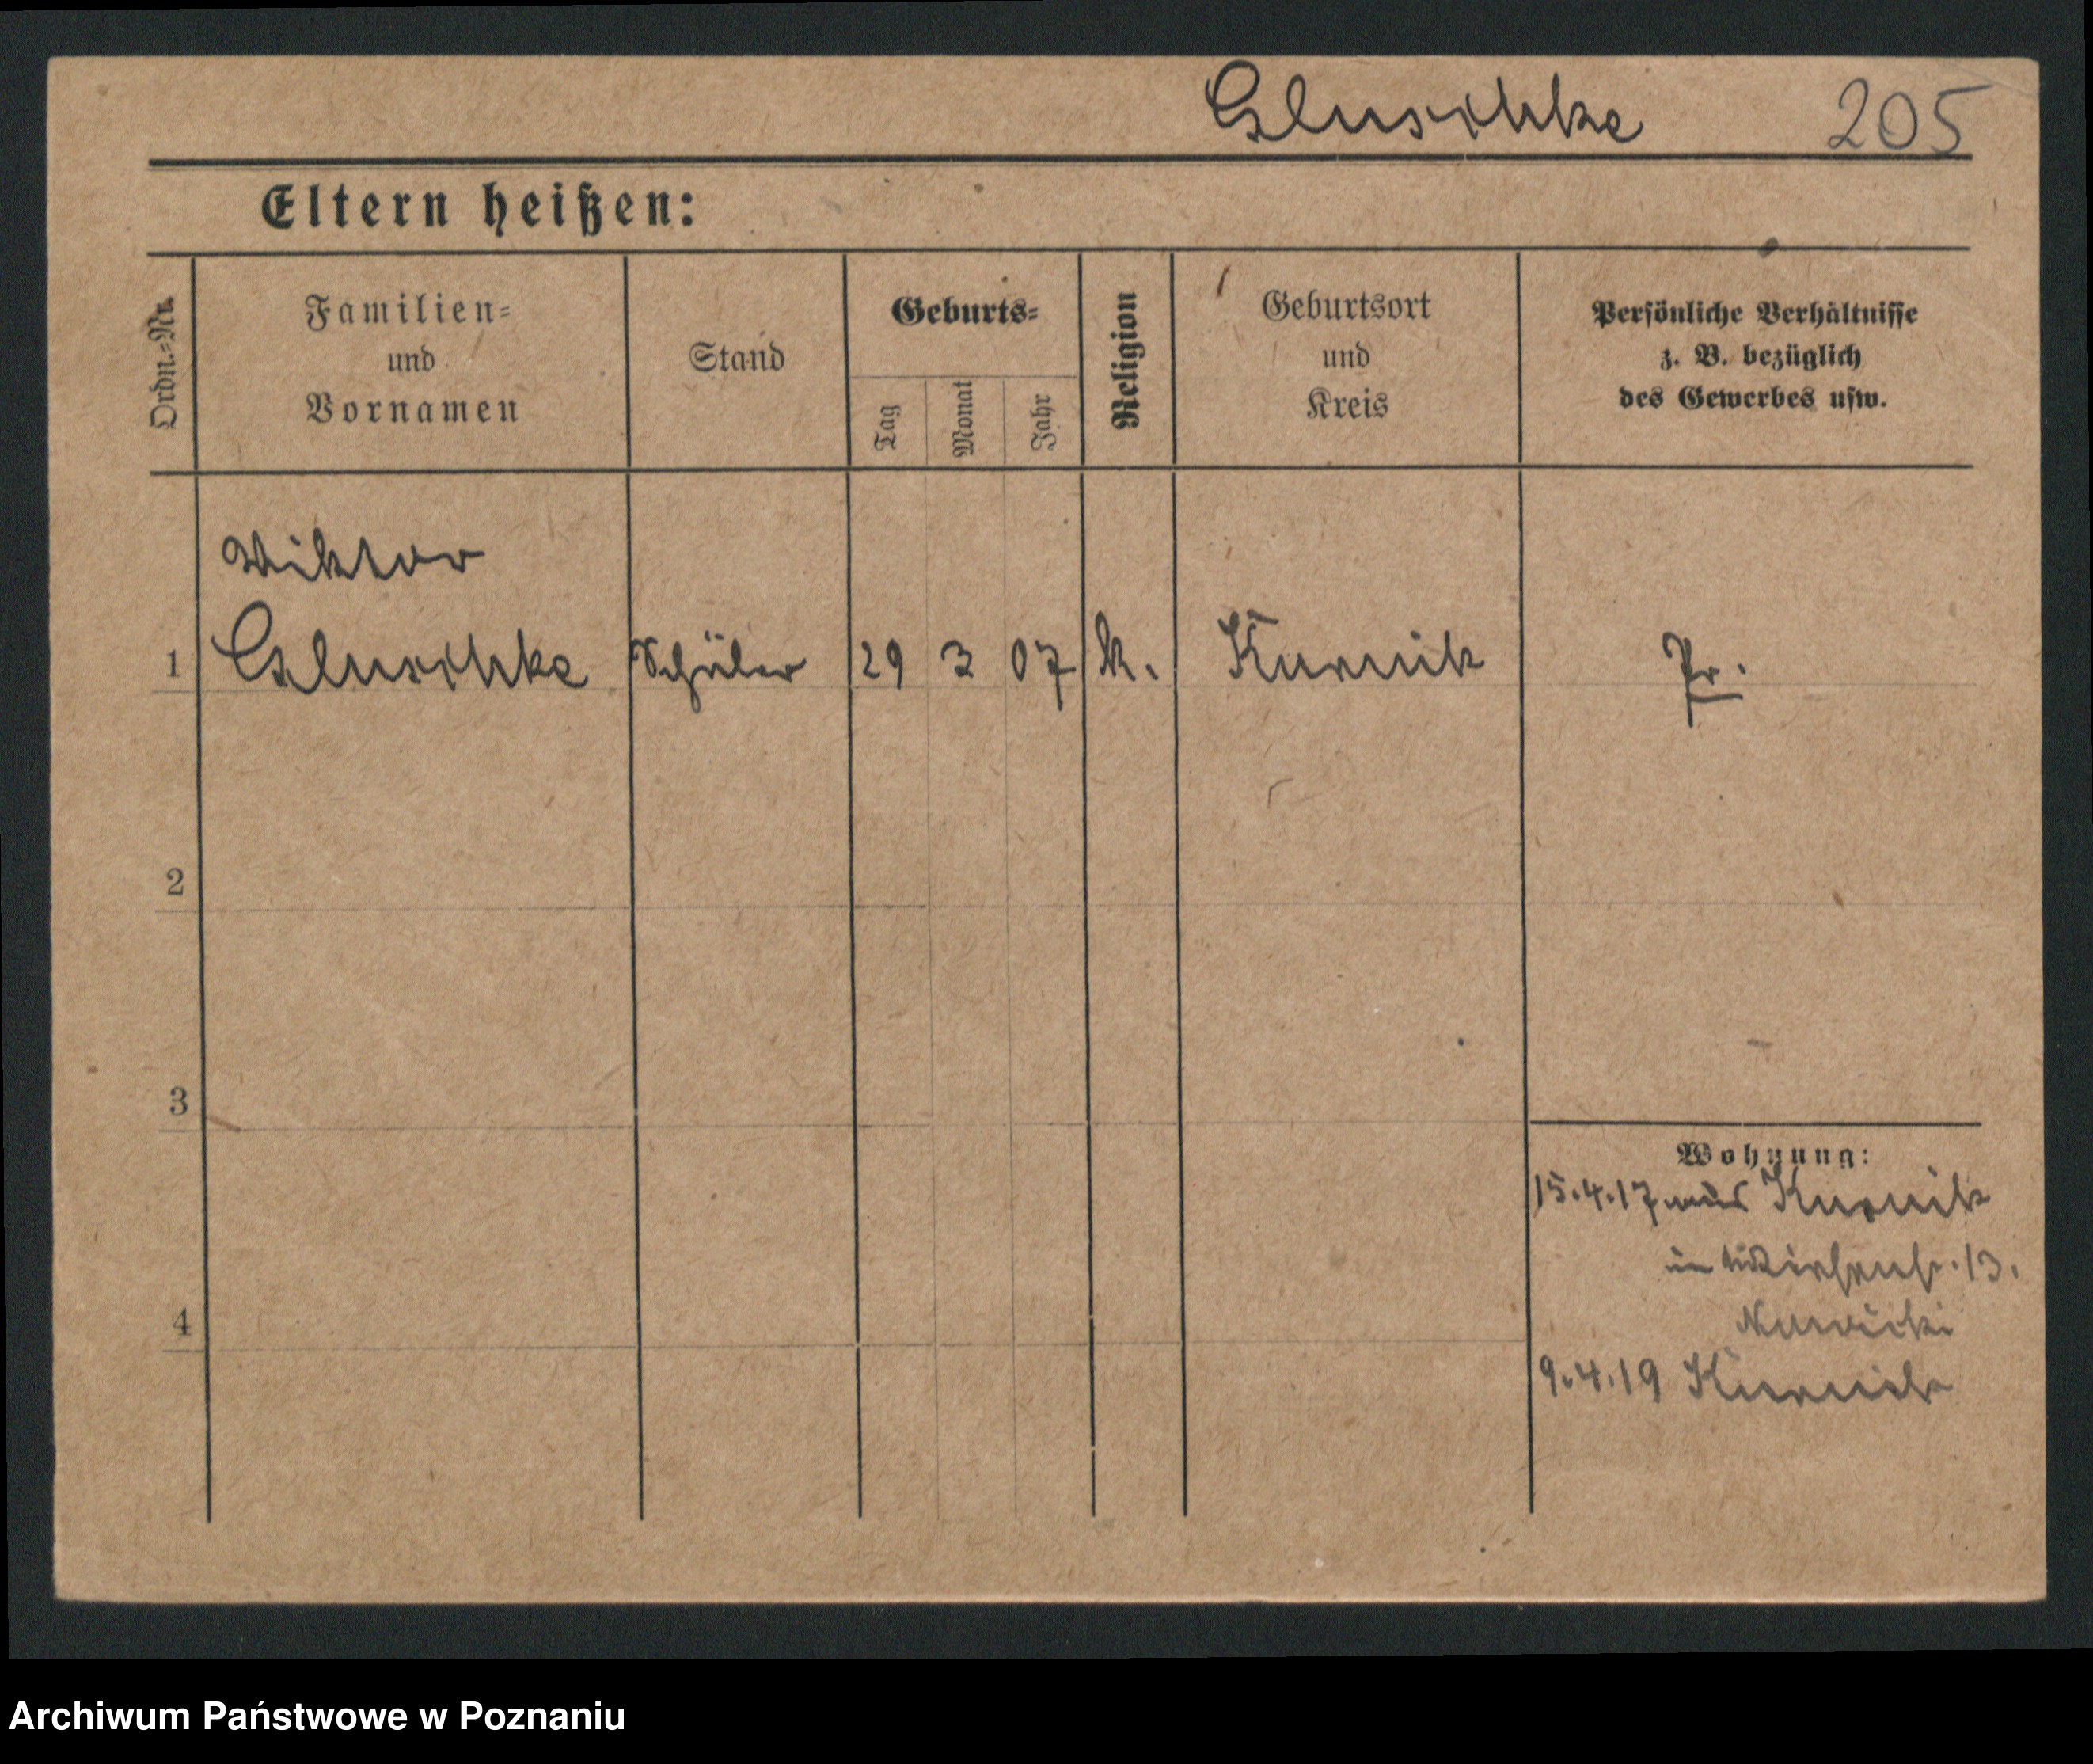 Gluschke 205
Eltern heißen:
Ordn.=Nr.
Familien=
und
Vornamen
Stand
Geburts=
Tag
Monat
Jahr
Religion
Geburtsort
und
Kreis
Persönliche Verhältnisse
z. B. bezüglich
des Gewerbes usw.
Viktor
1 Gluschke Schüler 29 3 07 k. Kurnik Pr.
2
3
Wohnung:
15.4.17 aus Kurnik
13.
4 Nawicki
9.4.19 Kurnik
Archiwum Państwowe w Poznaniu